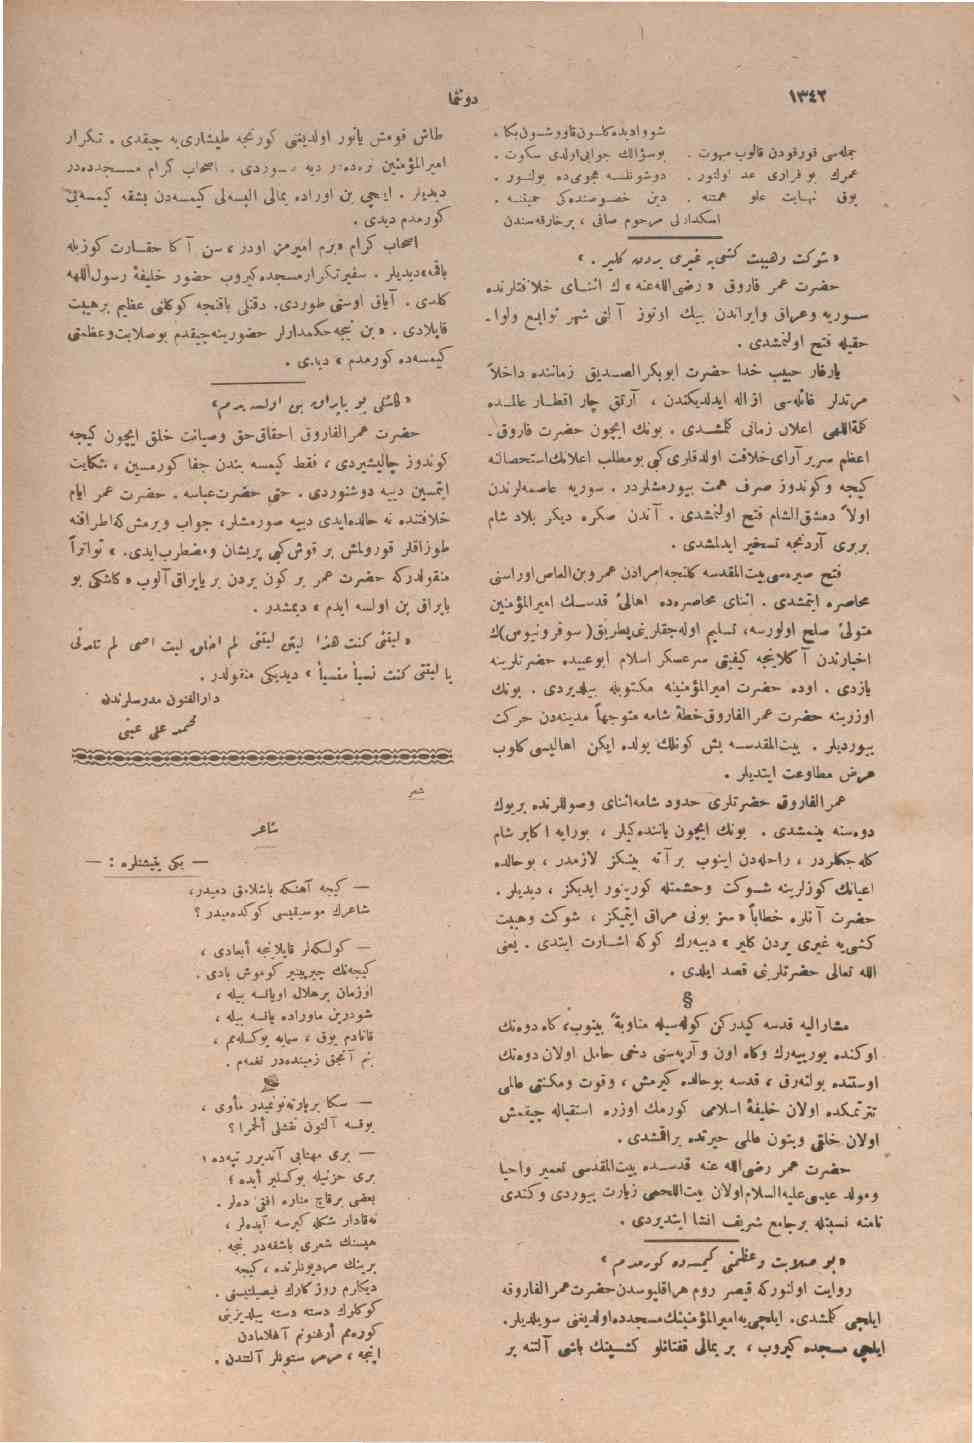 ١٣٤٢
دونما
شو وادیده کلسون قاووشسون بکا .
جمله‌سی قورقودن قالوب مبهوت .
بو سؤالك جوابی اولدی سکوت .
عمرك بو قراری عد اولنور .
دوشونلسه هجومی‌ده بولنور .
یوق نهایت علو همتنه .
دین خصوصنده‌کی حمیتنه .
اسکدارلی مرحوم صافی ، بر خارقه‌سندن
« شوکت و هیبت کشی‌یه غیری یردن کلیر . »
حضرت عمر فاروق « رضی الله عنه » ك اثنای خلافتلرنده
سوریه و عراق و ایراندن بیك اوتوز آلتی شهر توابع ولوا-
حقیله فتح اولنمشدی .
یارغار حبیب خدا حضرت ابوبکر الصدیق زماننده داخلاً
مرتدلر غائله‌سی ازاله ایدلدیکندن ، آرتق چار اقطار عالمده
کلمة‌اللهی اعلان زمانی کلمشدی . بونك ایچون حضرت فاروق-
اعظم سریر آرای خلافت اولدقلری کبی بو مطلب اعلانك استحصالنه
کیجه و کوندوز صرف همت بیورمشلردر . سوریه عاصمه‌لرندن
اولاً دمشق الشام فتح اولنمشدی . آندن صکره دیکر بلاد شام
بربری آردنجه تسخیر ایدلمشدی .
فتح صیره‌سی بیت‌المقدسه کلنجه امرادن عمرو بن العاص اوراسنی
محاصره ایتمشدی . اثنای محاصره‌ده اهالیٔ قدسك امیرالمؤمنین
متولیٔ صلح اولورسه، تسلیم اوله‌جقلرینی پطریق ( سوفرونیوس ) ك
اخبارندن آکلاینجه کیفیتی سرعسکر اسلام ابو عبیده حضرتلرینه
یازدی . اوده حضرت امیرالمؤمنینه مکتوبله بیلدیردی . بونك
اوزرینه حضرت عمر الفاروق خطهٔ شامه متوجهاً مدینه‌دن حرکت
بیوردیلر . بیت‌المقدسه بش کونلك یولده ایکن اهالیسی کلوب
عرض مطاوعت ایتدیلر .
عمر الفاروق حضرتلری حدود شامه اثنای وصوللرنده بر یوك
دوه‌سنه بینمشدی . بونك ایچون یاننده‌کیلر ، بورایه اکابر شام
کله‌جکلردر ، راحله‌دن اینوب بر آته بینمکز لازمدر ، بوحالده
اعیانك کوزلرینه شوکت و حشمتله کورینور ایدیکز ، دیدیلر .
حضرت آنلره خطاباً « سز بونی مراق ایتمیکز ، شوکت و هیبت
کشی‌یه غیری یردن کلیر » دییه‌رك کوکه اشارت ایتدی . یعنی
الله تعالی حضرتلرینی قصد ایلدی .
§
مشارالیه قدسه کیدرکن کوله‌سیله مناوبةً بینوب، کاه دوه‌نك
اوکنده یورییه‌رك وکاه اون و آرپه‌سنی دخی حامل اولان دوه‌نك
اوستنده بولنه‌رق ، قدسه بوحالده کیرمش ، وقوت ومکنتی عالمی
تترتمکده اولان خلیفهٔ اسلامی کورمك اوزره استقباله چیقمش
اولان خلقی وبتون عالمی حیرتده براقمشدی .
حضرت عمر رضی الله عنه قدسده بیت‌المقدسی تعمیر واحیا
ومولد عیسی علیه‌السلام اولان بیت‌اللحمی زیارت بیوردی وکندی
نامنه نسبتله بر جامع شریف انشا ایتدیردی .
« بو صلابت و عظمتی کیمسه‌ده کورمدم »
روایت اولنورکه قیصر روم هراقلیوسدن حضرت عمر الفاروقه
ایلچی کلمشدی . ایلچی‌یه امیرالمؤمنینك مسجدده اولدیغنی سویلدیلر.
ایلچی مسجده کیروب ، بر یمالی قفتانلو کشینك باشی آلتنه بر
طاش قومش یاتور اولدیغنی کورنجه طیشاری‌یه چیقدی . تکرار
امیرالمؤمنین نره‌ده‌در دیه صوردی . اصحاب کرام مسجدده‌در
دیدیلر . ایلچی بن اوراده یمالی البسه‌لی کیمسه‌دن بشقه کیمسه‌یی
کورمدم دیدی .
اصحاب کرام « بزم امیرمز اودر ، سن آکا حقارت کوزیله
باقمه » دیدیلر . سفیر تکرار مسجده کیروب حضور خلیفهٔ رسول‌اللهه
کلدی . آیاق اوستی طوردی. دقتلی باقنجه کوکلنی عظیم برهیبت
قاپلادی . « بن نیجه حکمدارلر حضورینه چیقدم بو صلابت وعظمتی
کیمسه‌ده کورمدم » دیدی .
« کاشکی بو یاپراق بن اولسه‌یدم »
حضرت عمر الفاروق احقاق حق وصیانت خلق ایچون کیجه
کوندوز چالیشیردی ، فقط کیمسه بندن جفا کورمسین ، شکایت
ایتمسین دییه دوشنوردی . حتی حضرت عباسه . حضرت عمر ایام
خلافتنده نه حالده‌ایدی دییه صورمشلر، جواب ویرمش که اطرافنه
طوزاقلر قورولمش بر قوش کبی پریشان ومضطرب ایدی. » تواتراً
منقولدرکه حضرت عمر بر کون یردن بر یاپراق آلوب « کاشکی بو
یاپراق بن اولسه ایدم » دیمشدر .
« لیتنی کنت هذا لیتنی لم اخلق لیت امی لم تلدنی
یا لیتنی کنت نسیاً منسیاً » دیدیکی منقولدر .
دارالفنون مدرسلرندن
محمد علی عینی
شعر
شاعر
— یکی یتیشنلره : —
— کیجه آهنکه باشلامق دمیدر،
شاعرك موسیقیسی کوکده‌میدر ؟
— کولکه‌لر قاپلاینجه أبعادی ،
کیجه‌نك چیرپینیر کوموش یادی .
اوزمان بر هلال اویانسه بیله ،
شو درین ماوراده یانسه بیله ،
قانادم یوق ، سمایه یوکسله‌مم ،
بنم آنجق زمینده‌در نغمه‌م .
— سکا بر پارته‌نونمیدر مأوی ،
یوقسه آلتون نقشلی ألحمرا ؟
— بری مهتابی آندیرر تپه‌ده ؛
بری حزنیله یوکسلیر أبده ؛
بعضی برقاچ مناره افقی ده‌لر .
نه‌قادار شکله کیرسه آبده‌لر ،
هپسنك شعری باشقه‌در بنجه .
برینك مردیونلرنده ، کیجه
دیکلرم روزکارك فیصیلتیسنی .
کوکلرك دسته دسته ییلدیزینی
کوره‌مم أرغنونم آغلامادن
اینجه ، مرمر ستونلر آلتندن .